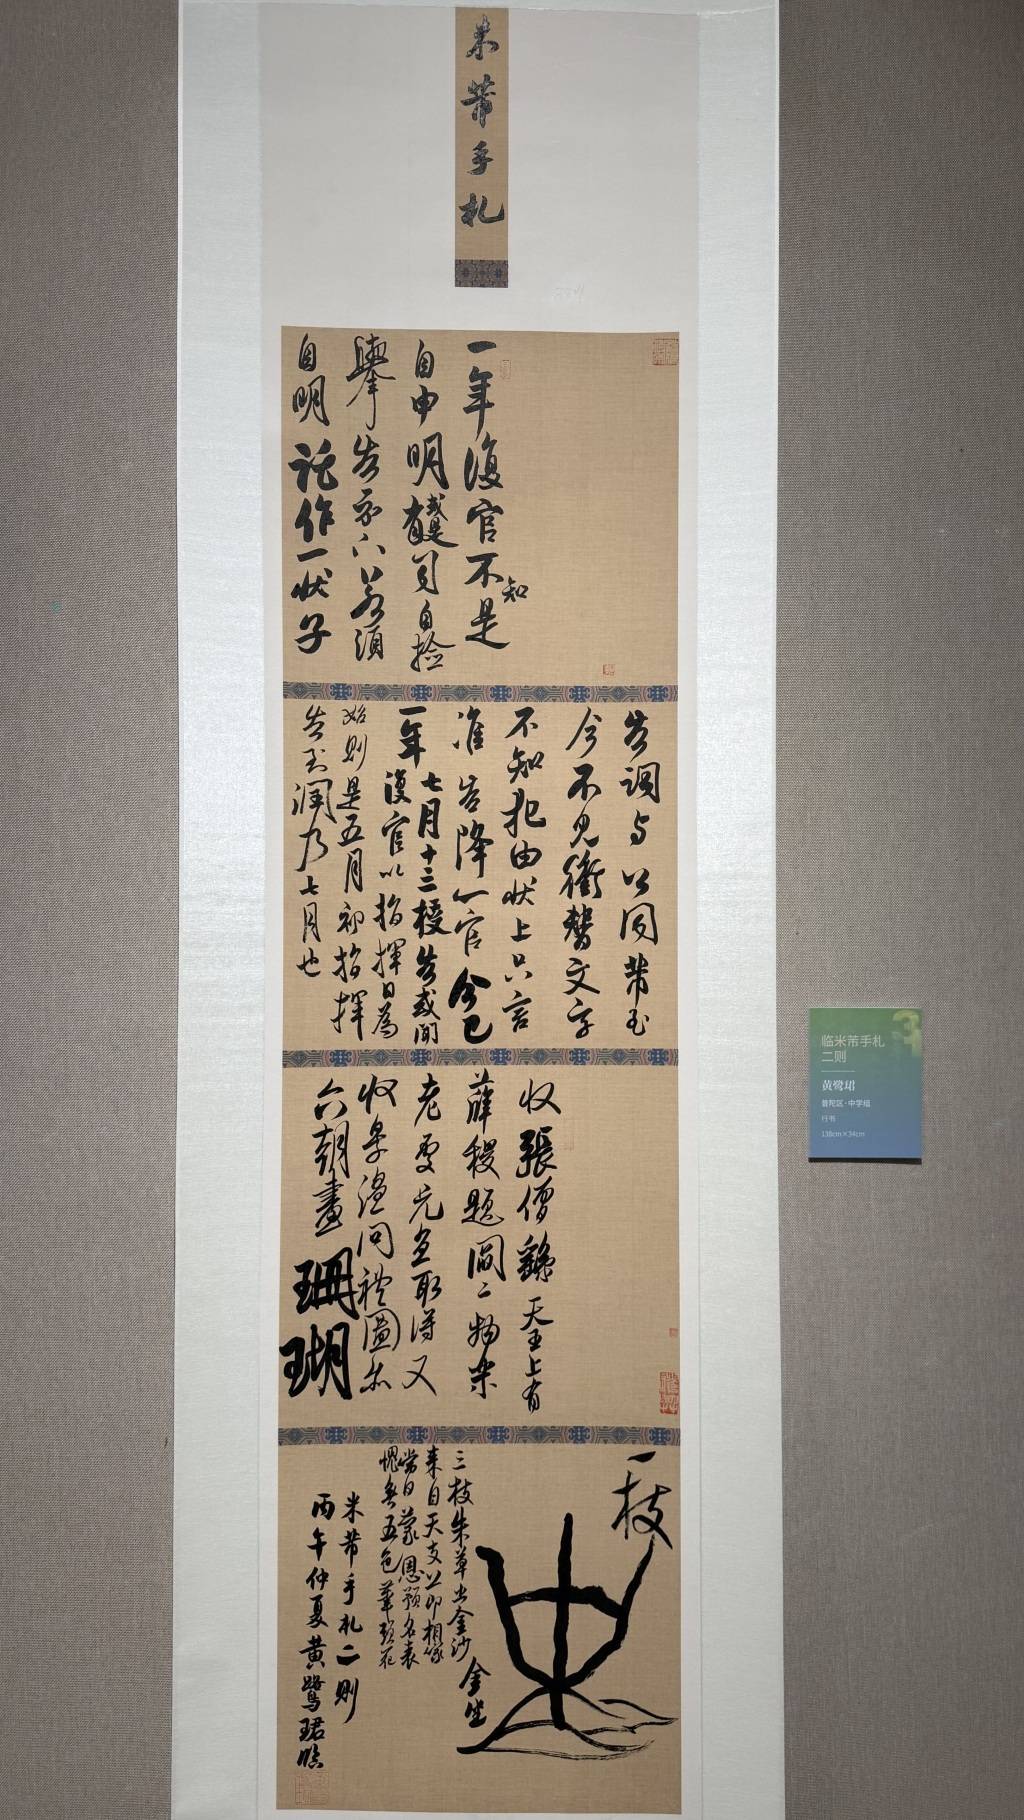 米芾手札
一年復官不是
知
自申明或是
有司自撿
舉告示下若須
自明託作一狀子
告詞与以同芾至
今不見衝替文字
不知犯由狀上只言
准告降一官今已
一年七月十三授告或聞
復官以指揮日為
始則是五月初指揮
告到潤乃七月也
收張僧繇天王上有
薛稷題閻二物樂
老處元直取得又
收景溫問禮圖亦
六朝畫珊瑚
一枝
三枝朱草出金沙
來自天支節相家
當日蒙恩預名表
愧無五色筆頭花
金坐
米芾手札二則
丙午仲夏黃鷺珺臨
临米芾手札
二则
黄鹭珺
普陀区·中学组
行书
138cm×34cm